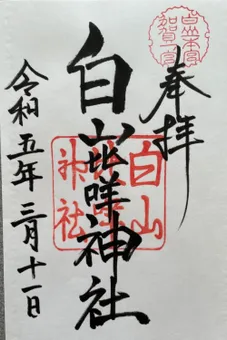 白山本宮
加賀一宮
奉拝
白山比咩神社
白山比咩神社
令和五年三月十一日